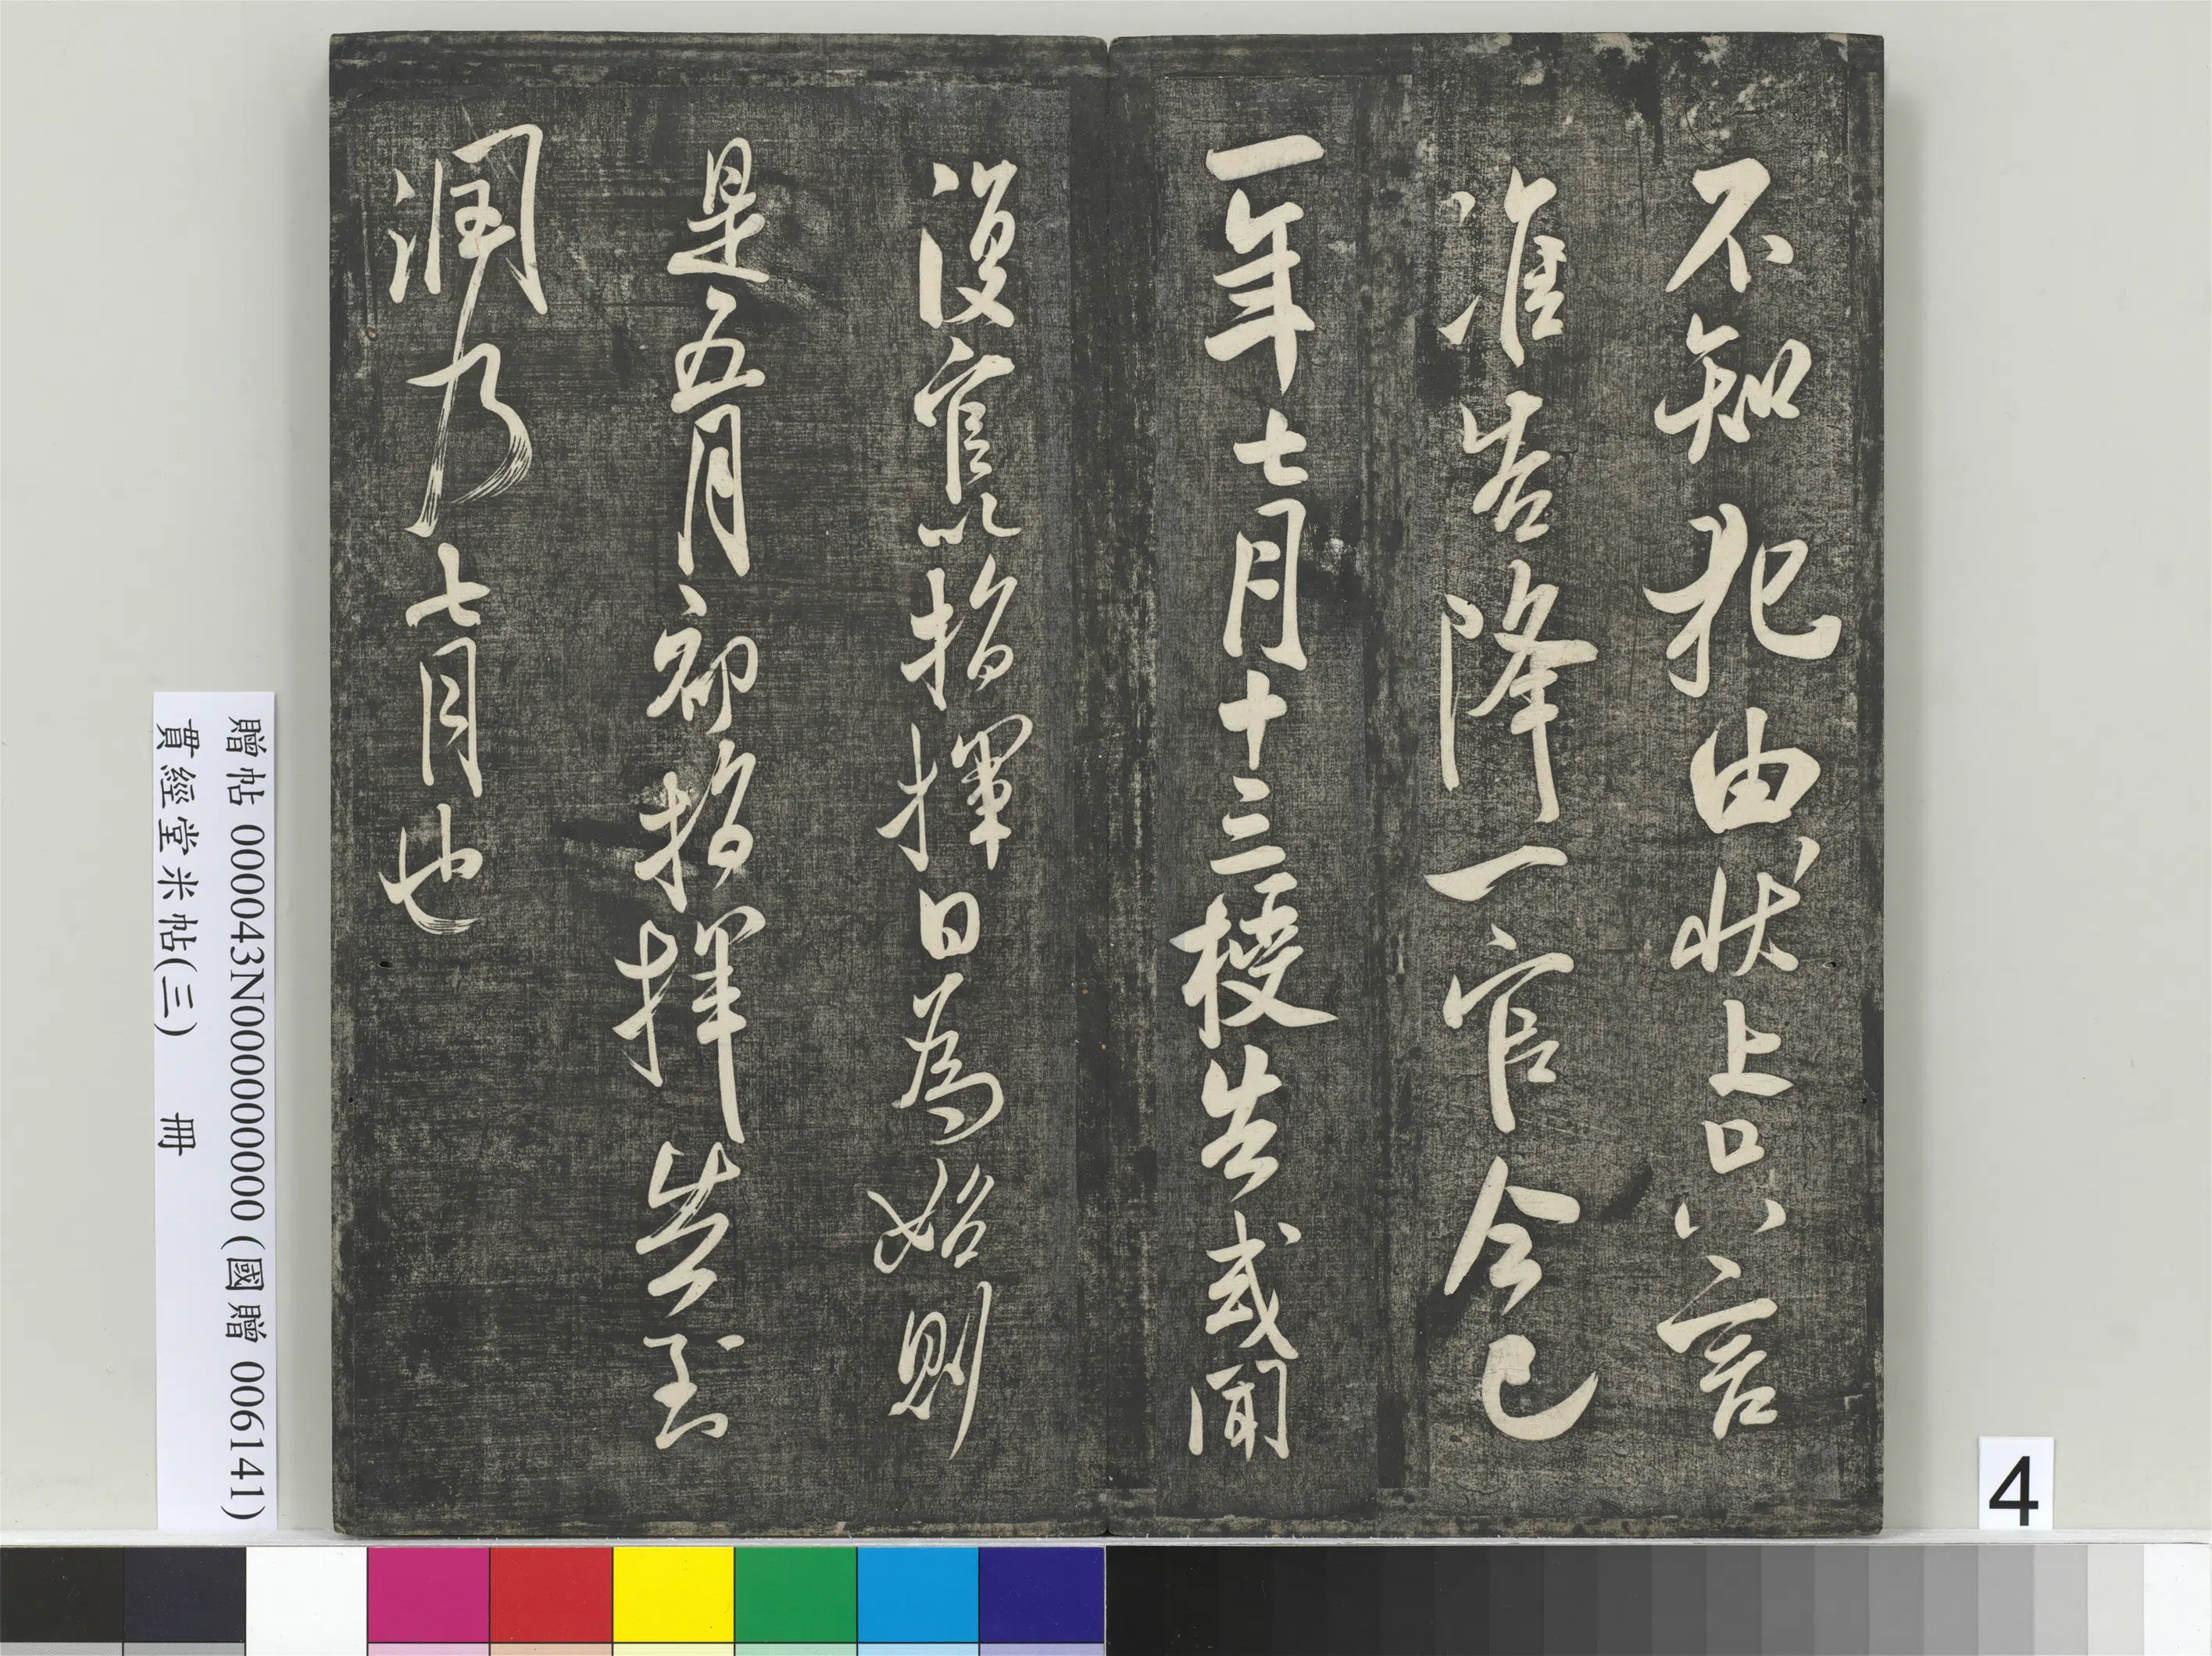 不知犯由狀上只以言
准告降一官今已
一年七月十三授告或聞
復官以指揮日為始則
是五月初指揮告到
潤乃七月也
贈帖 000043N000000000 (國贈 006141)
貫經堂米帖(三) 冊
4